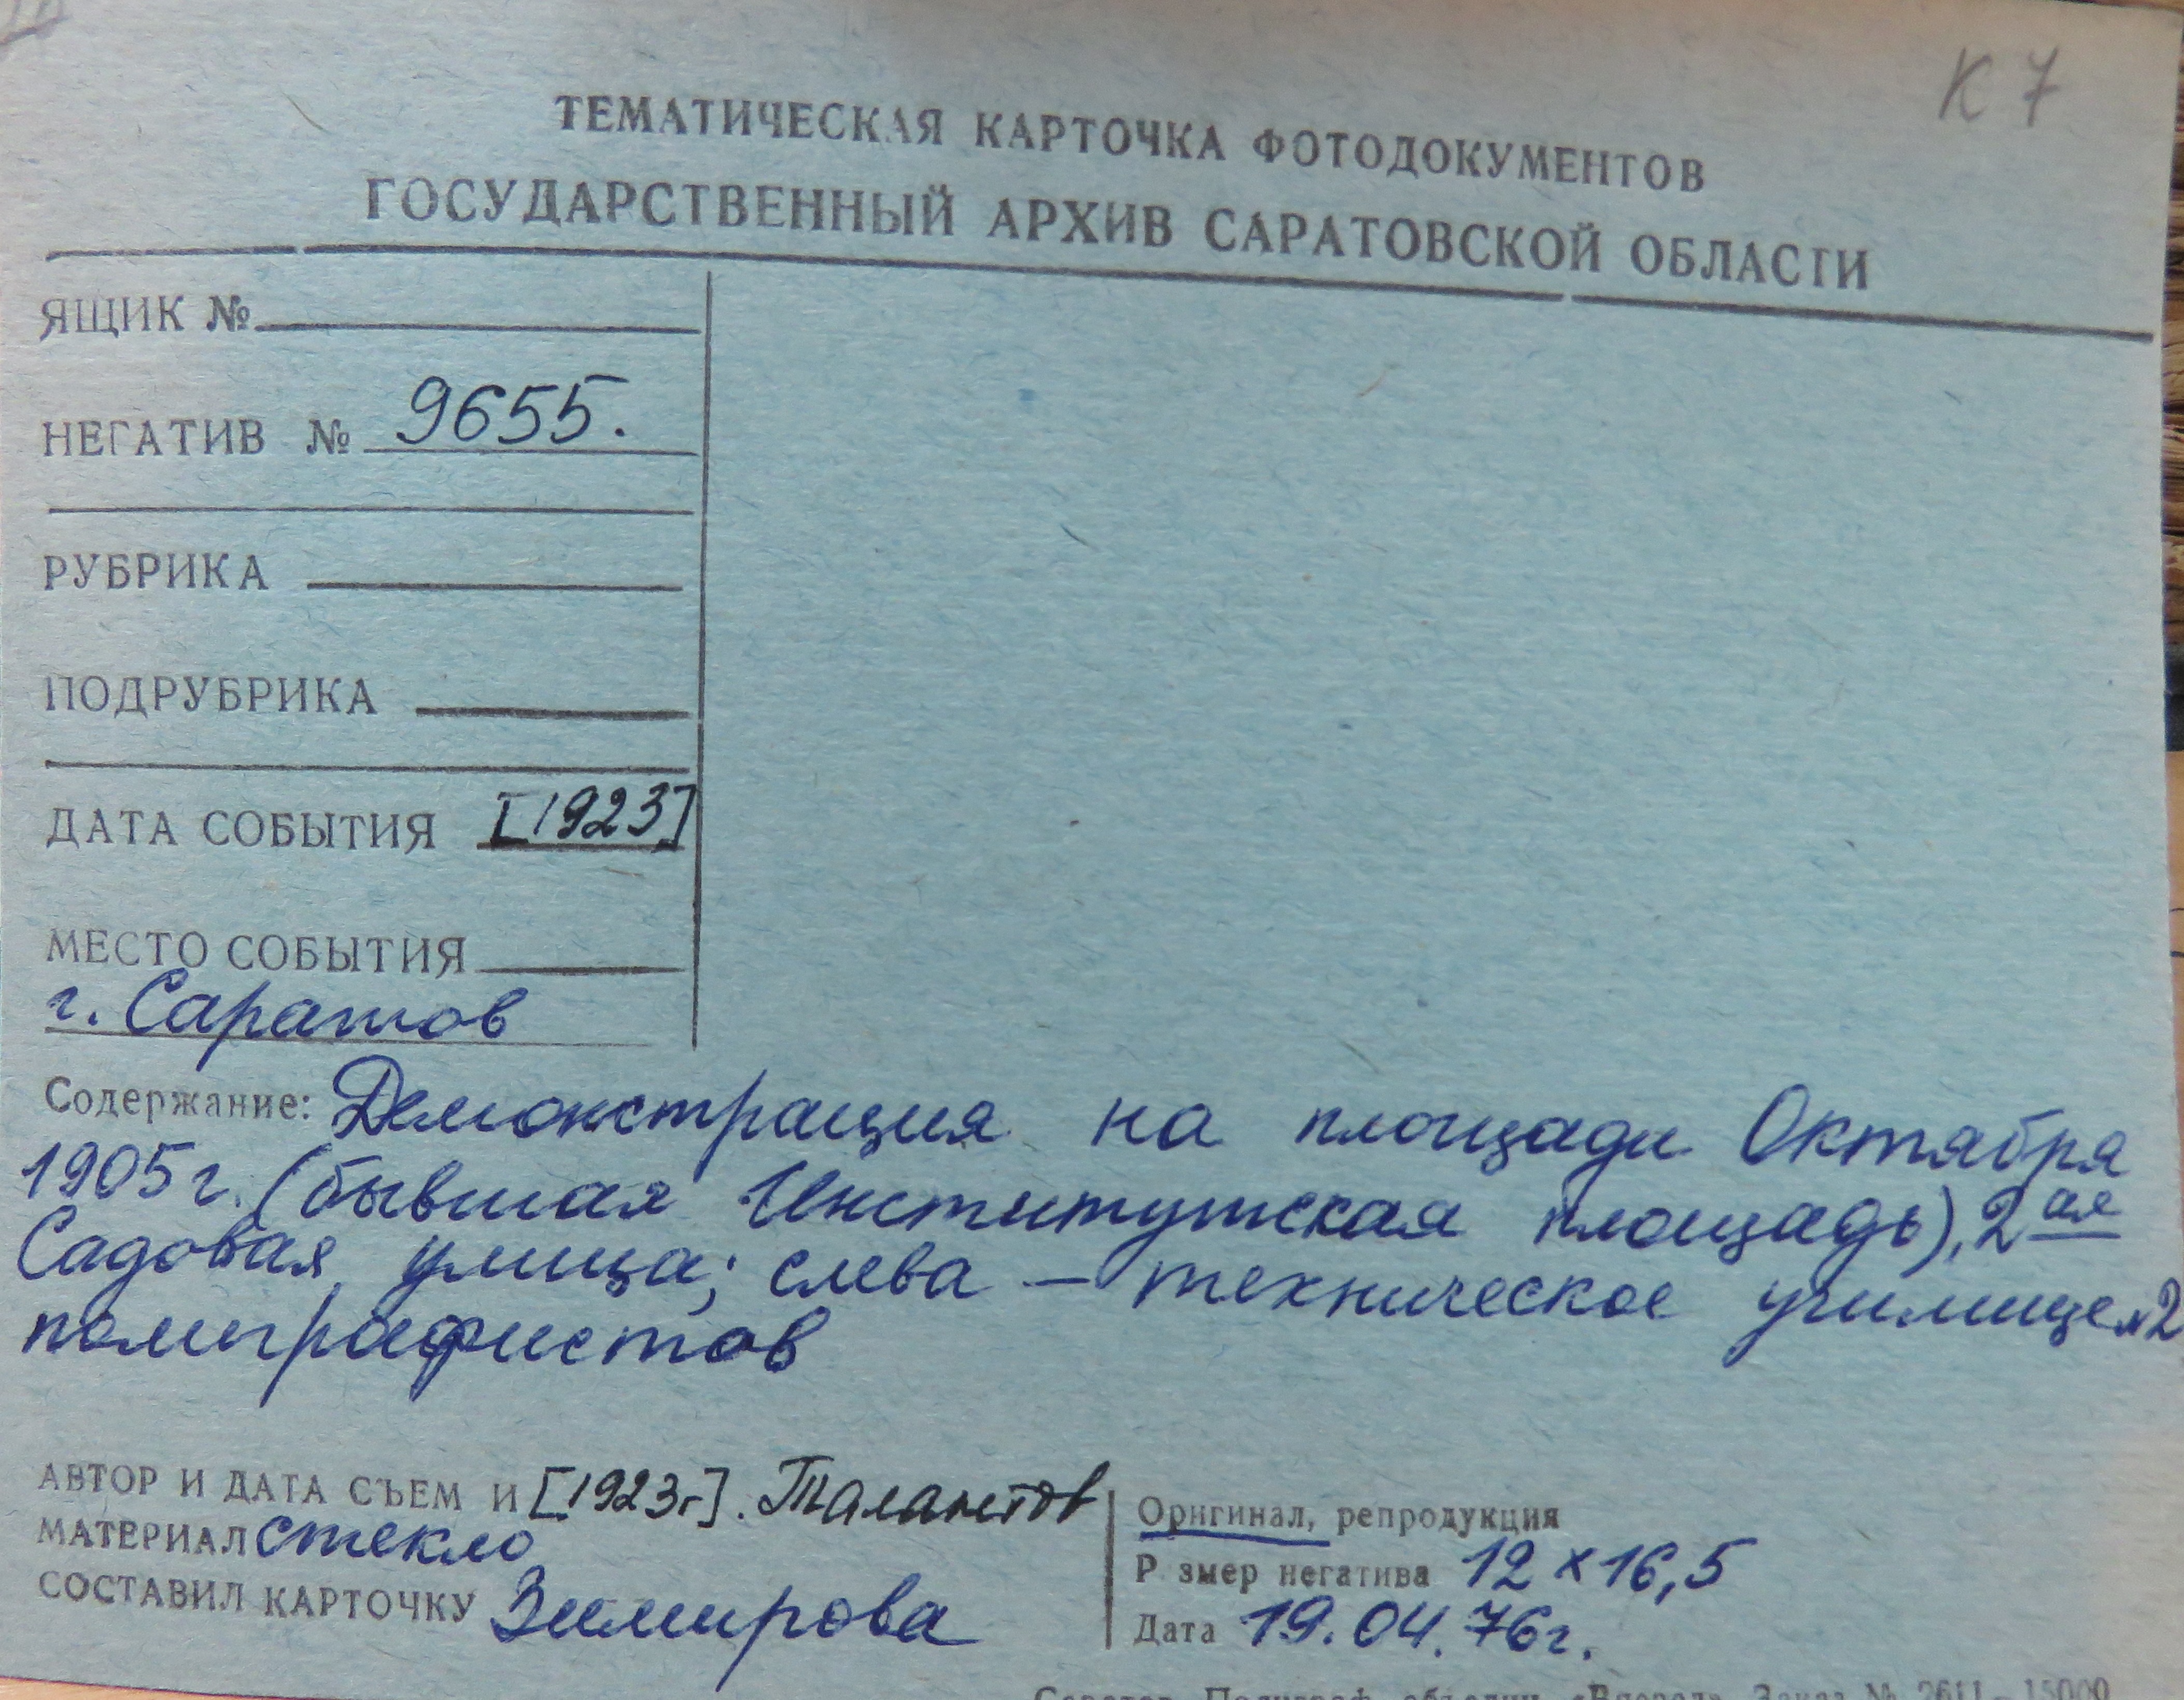 К 7
ТЕМАТИЧЕСКАЯ КАРТОЧКА ФОТОДОКУМЕНТОВ
ГОСУДАРСТВЕННЫЙ АРХИВ САРАТОВСКОЙ ОБЛАСТИ
ЯЩИК №
НЕГАТИВ № 9655.
РУБРИКА
ПОДРУБРИКА
ДАТА СОБЫТИЯ [1923]
МЕСТО СОБЫТИЯ
г. Саратов
Содержание: Демонстрация на площади Октября
1905г. (бывшая Институтская площадь), 2ая
Садовая улица; слева – техническое училище №2
полиграфистов
АВТОР И ДАТА СЪЕМ И [1923г]. Талантов
МАТЕРИАЛ стекло
СОСТАВИЛ КАРТОЧКУ Зимирова
Оригинал, репродукция
Р змер негатива 12 × 16,5
Дата 19.04.76г.
Заказ № 2611 15000